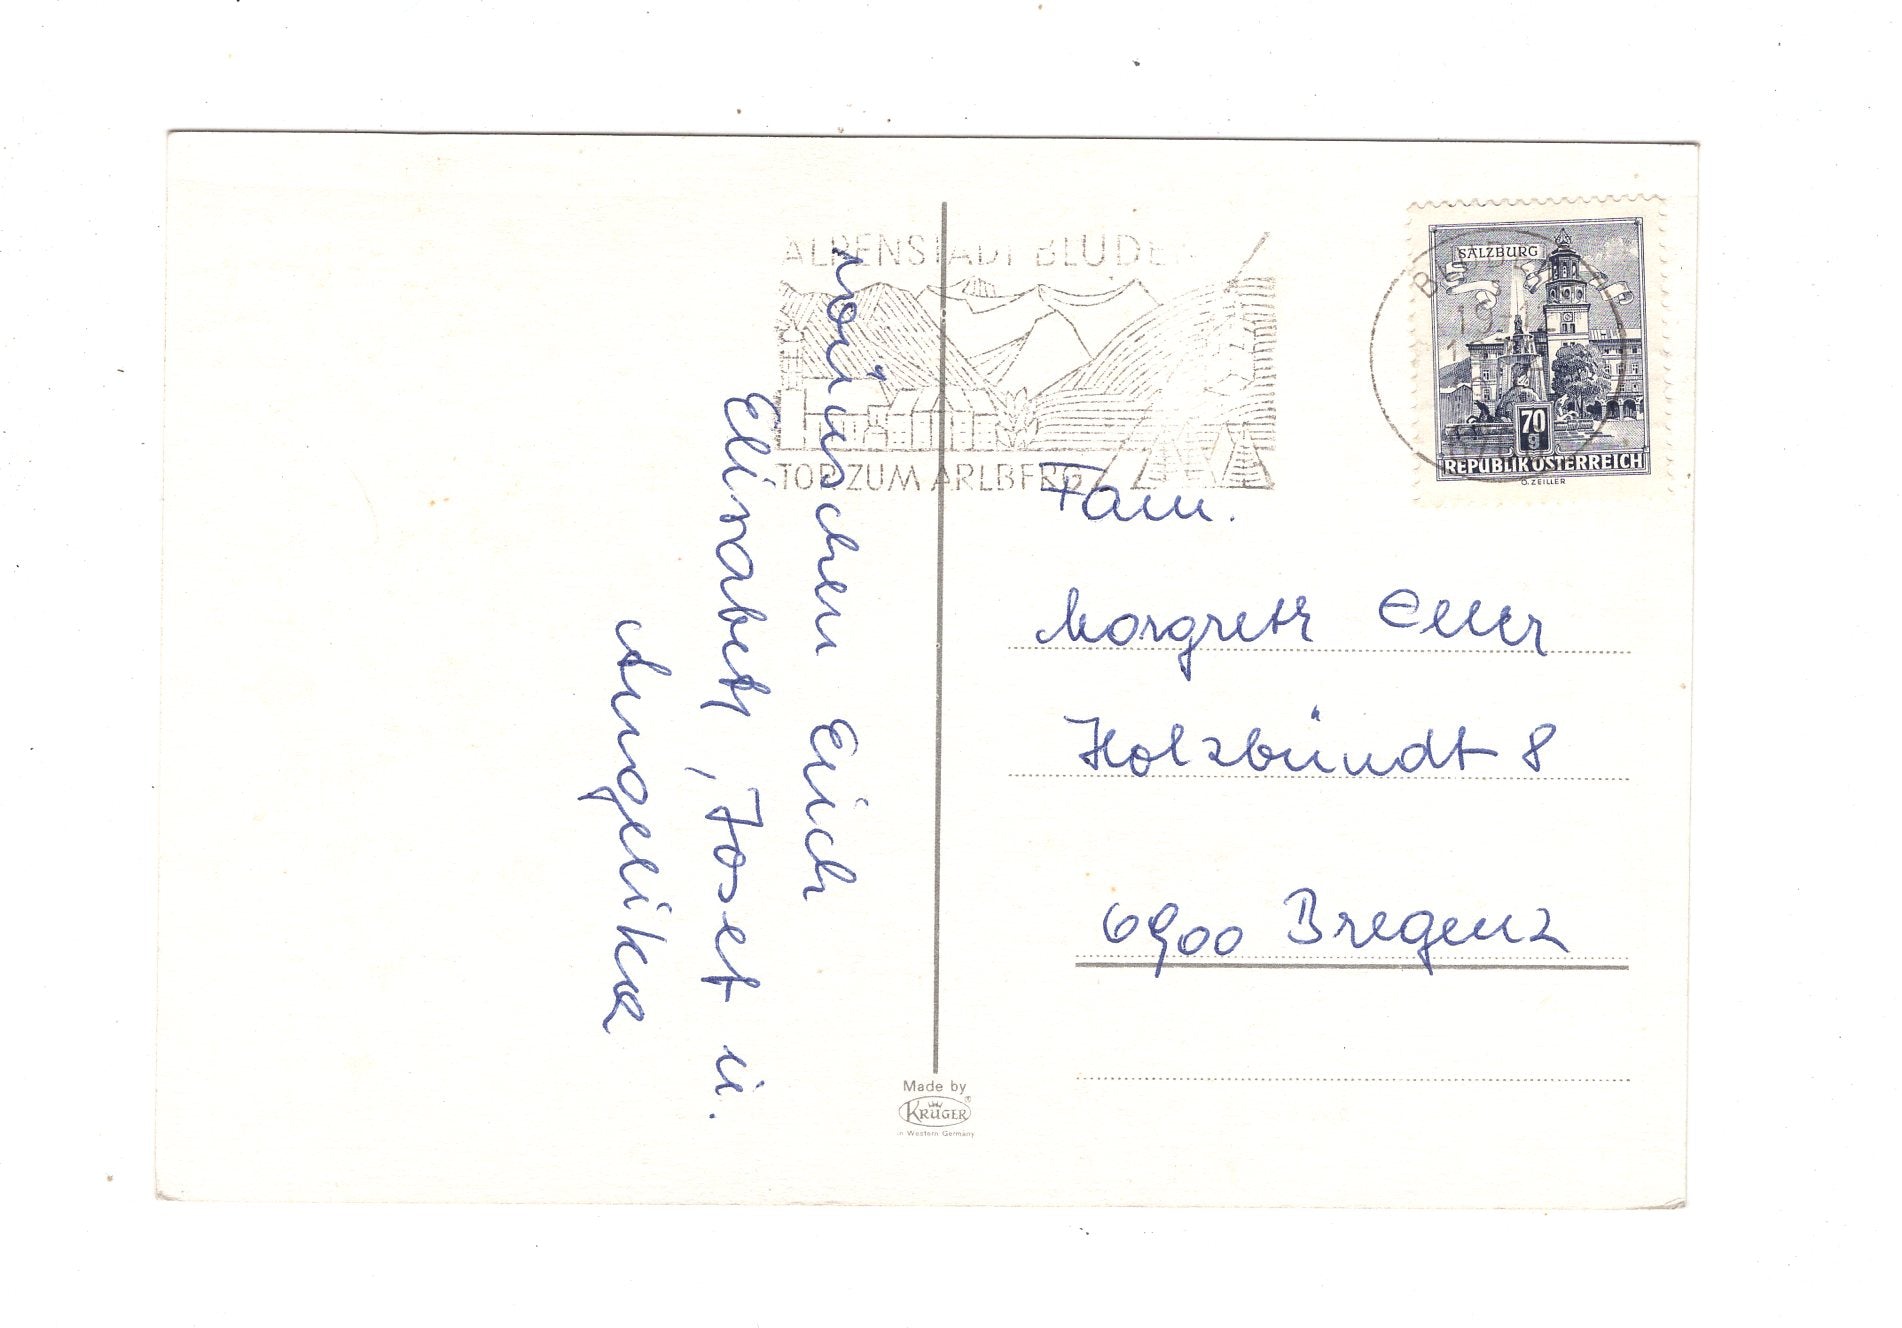 wünschen Euch
Elisabeth, Josef u.
Angelika
ALPENSTADT BLUDEN
TOR ZUM ARLBERG
SALZBURG
70
g
REPUBLIK ÖSTERREICH
G. ZEILLER
Fam.
Margreth Eller
Holzbündt 8
6900 Bregenz
Made by
KRÜGER
in Western Germany